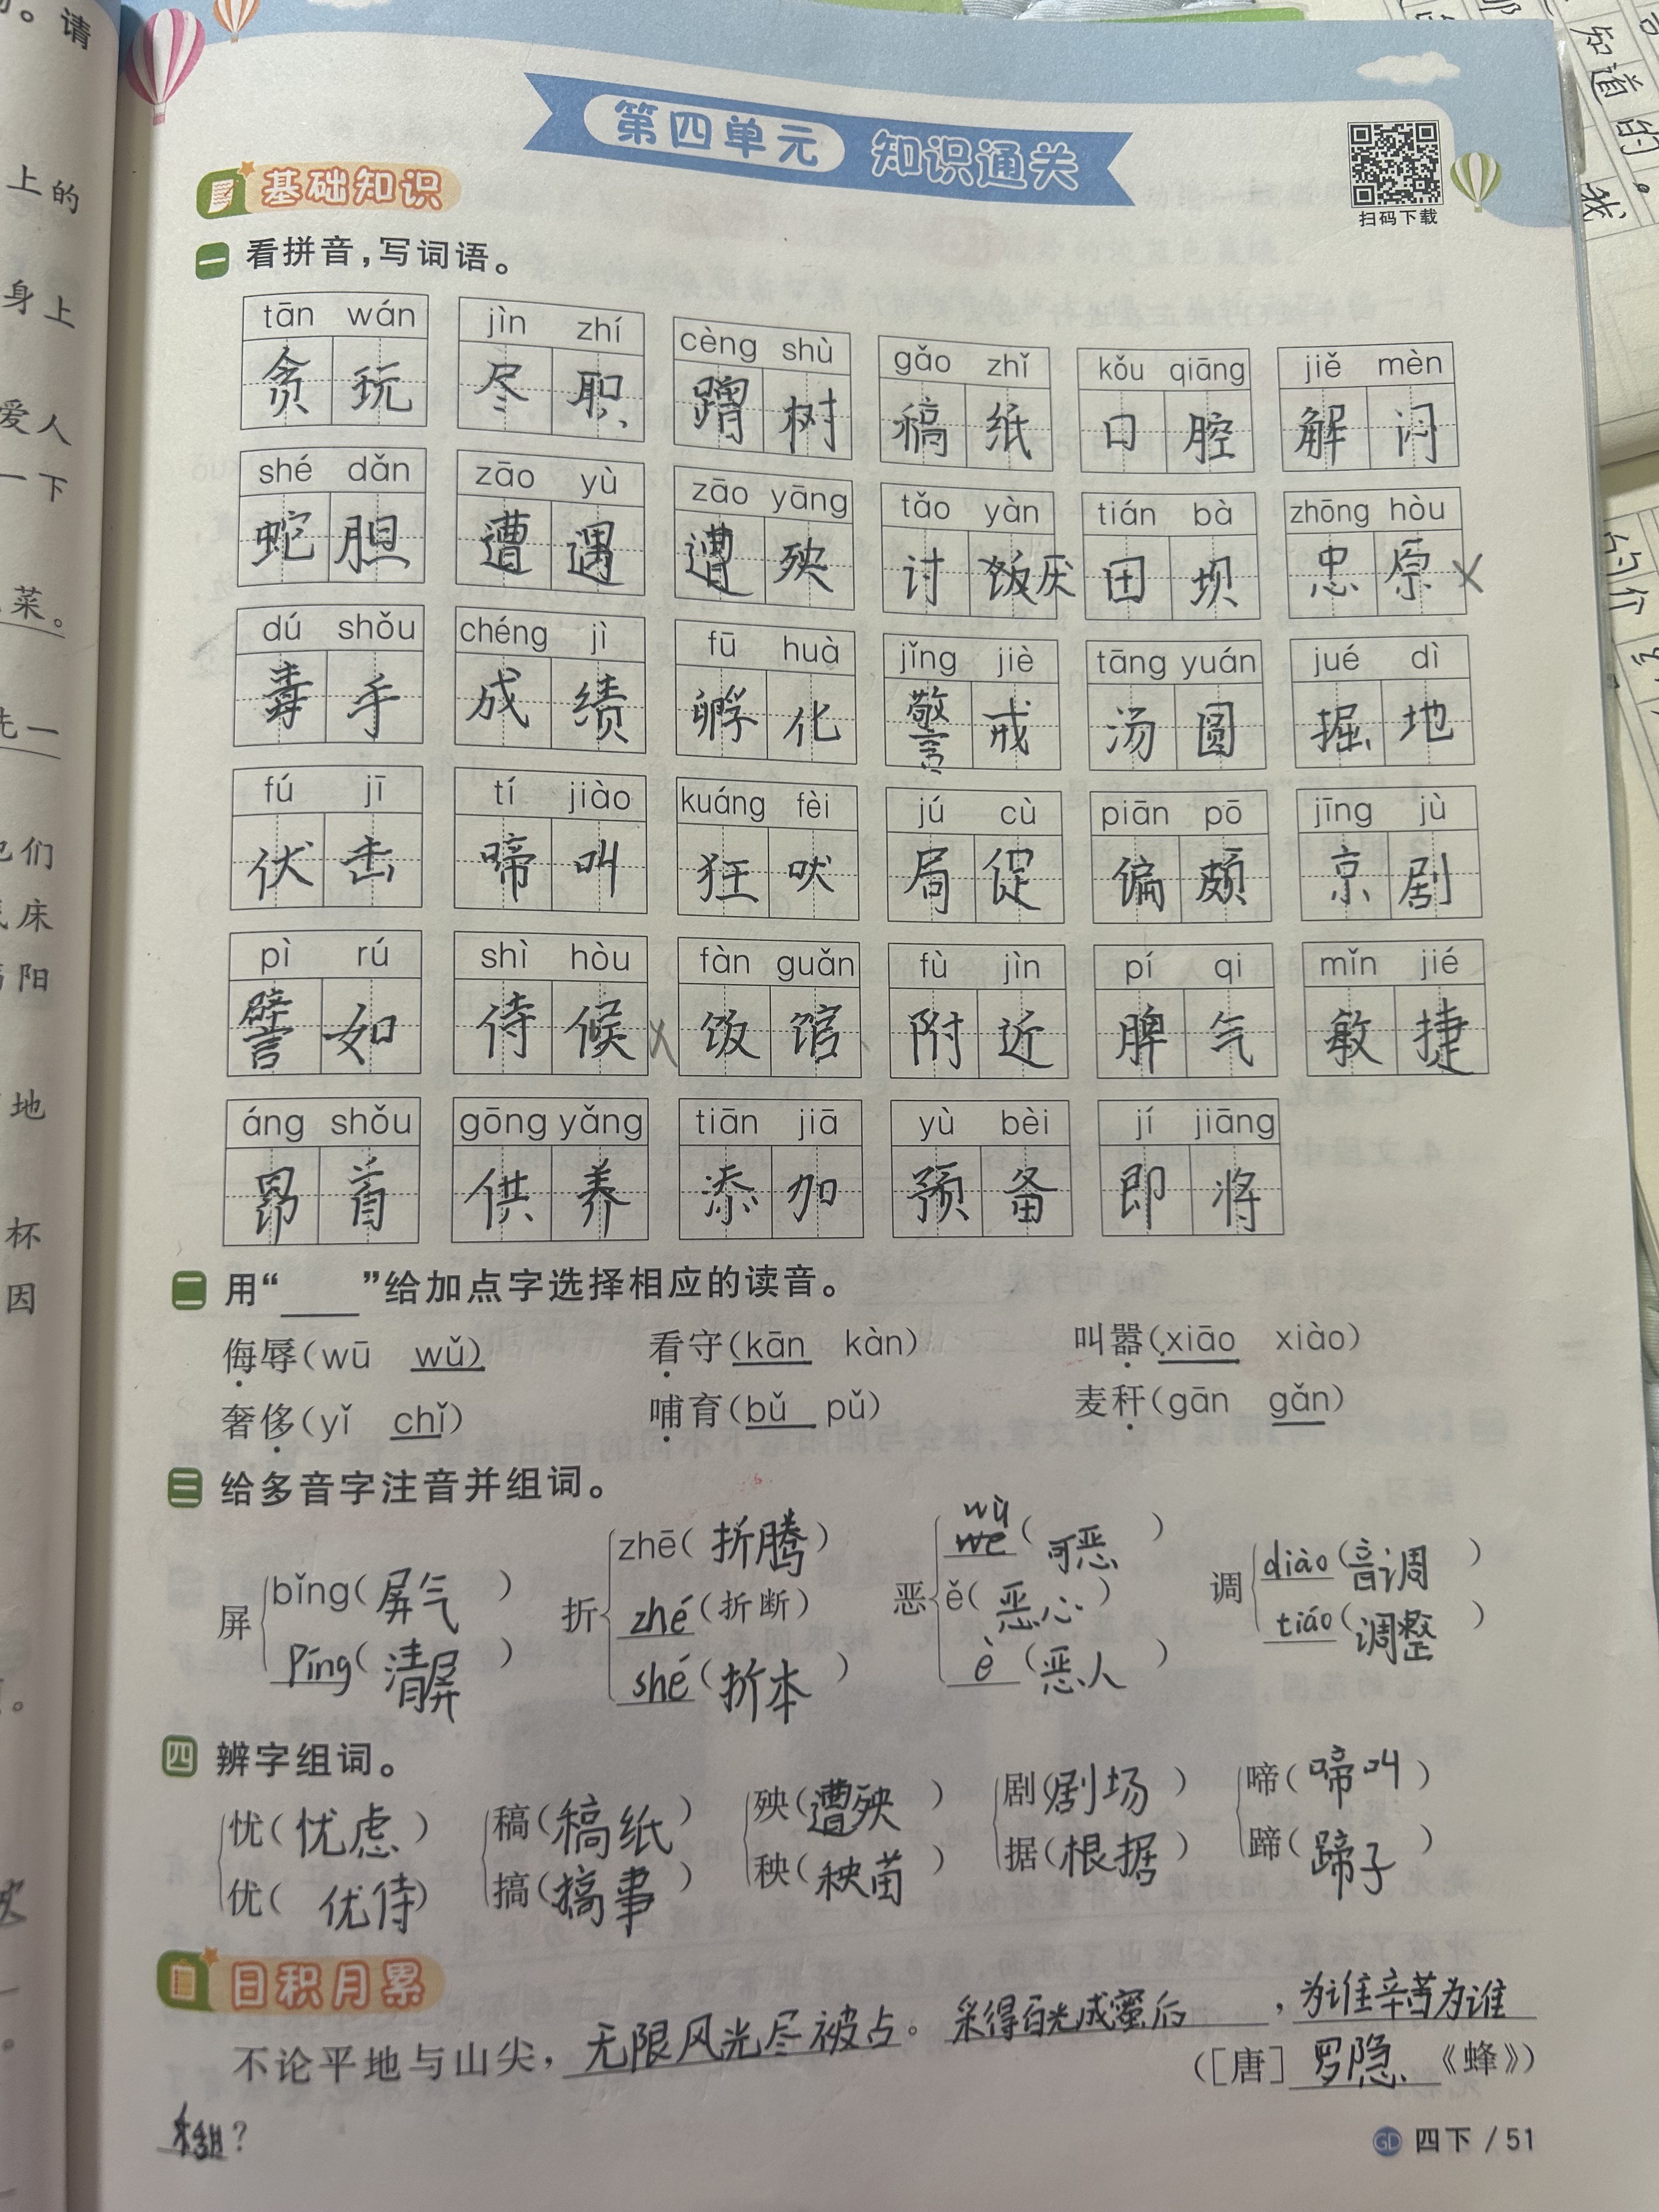 第四单元 知识通关
扫码下载
基础知识
一 看拼音，写词语。
tān wán jìn zhí cèng shù gǎo zhǐ kǒu qiāng jiě mèn
贪玩 尽职 蹭树 稿纸 口腔 解闷
shé dǎn zāo yù zāo yāng tǎo yàn tián bà zhōng hòu
蛇胆 遭遇 遭殃 讨饭厌 田坝 忠原 X
dú shǒu chéng jì fū huà jǐng jiè tāng yuán jué dì
毒手 成绩 孵化 警戒 汤圆 掘地
fú jī tí jiào kuáng fèi jú cù piān pō jīng jù
伏击 啼叫 狂吠 局促 偏颇 京剧
pì rú shì hòu fàn guǎn fù jìn pí qi mǐn jié
譬如 侍候 X 饭馆 附近 脾气 敏捷
áng shǒu gōng yǎng tiān jiā yù bèi jí jiāng
昂首 供养 添加 预备 即将
二 用“____”给加点字选择相应的读音。
侮辱(wū wǔ) 看守(kān kàn) 叫嚣(xiāo xiào)
奢侈(yǐ chǐ) 哺育(bǔ pǔ) 麦秆(gān gǎn)
三 给多音字注音并组词。
屏 bǐng(屏气) píng(清屏)
折 zhē(折腾) zhé(折断) shé(折本)
恶 wù(可恶) ě(恶心) è(恶人)
调 diào(音调) tiáo(调整)
四 辨字组词。
忧(忧虑) 稿(稿纸) 殃(遭殃) 剧(剧场) 啼(啼叫)
优(优待) 搞(搞事) 秧(秧苗) 据(根据) 蹄(蹄子)
日积月累
不论平地与山尖，无限风光尽被占。采得百光成蜜后，为谁辛苦为谁
([唐]罗隐《蜂》)
甜？
GD 四下 / 51